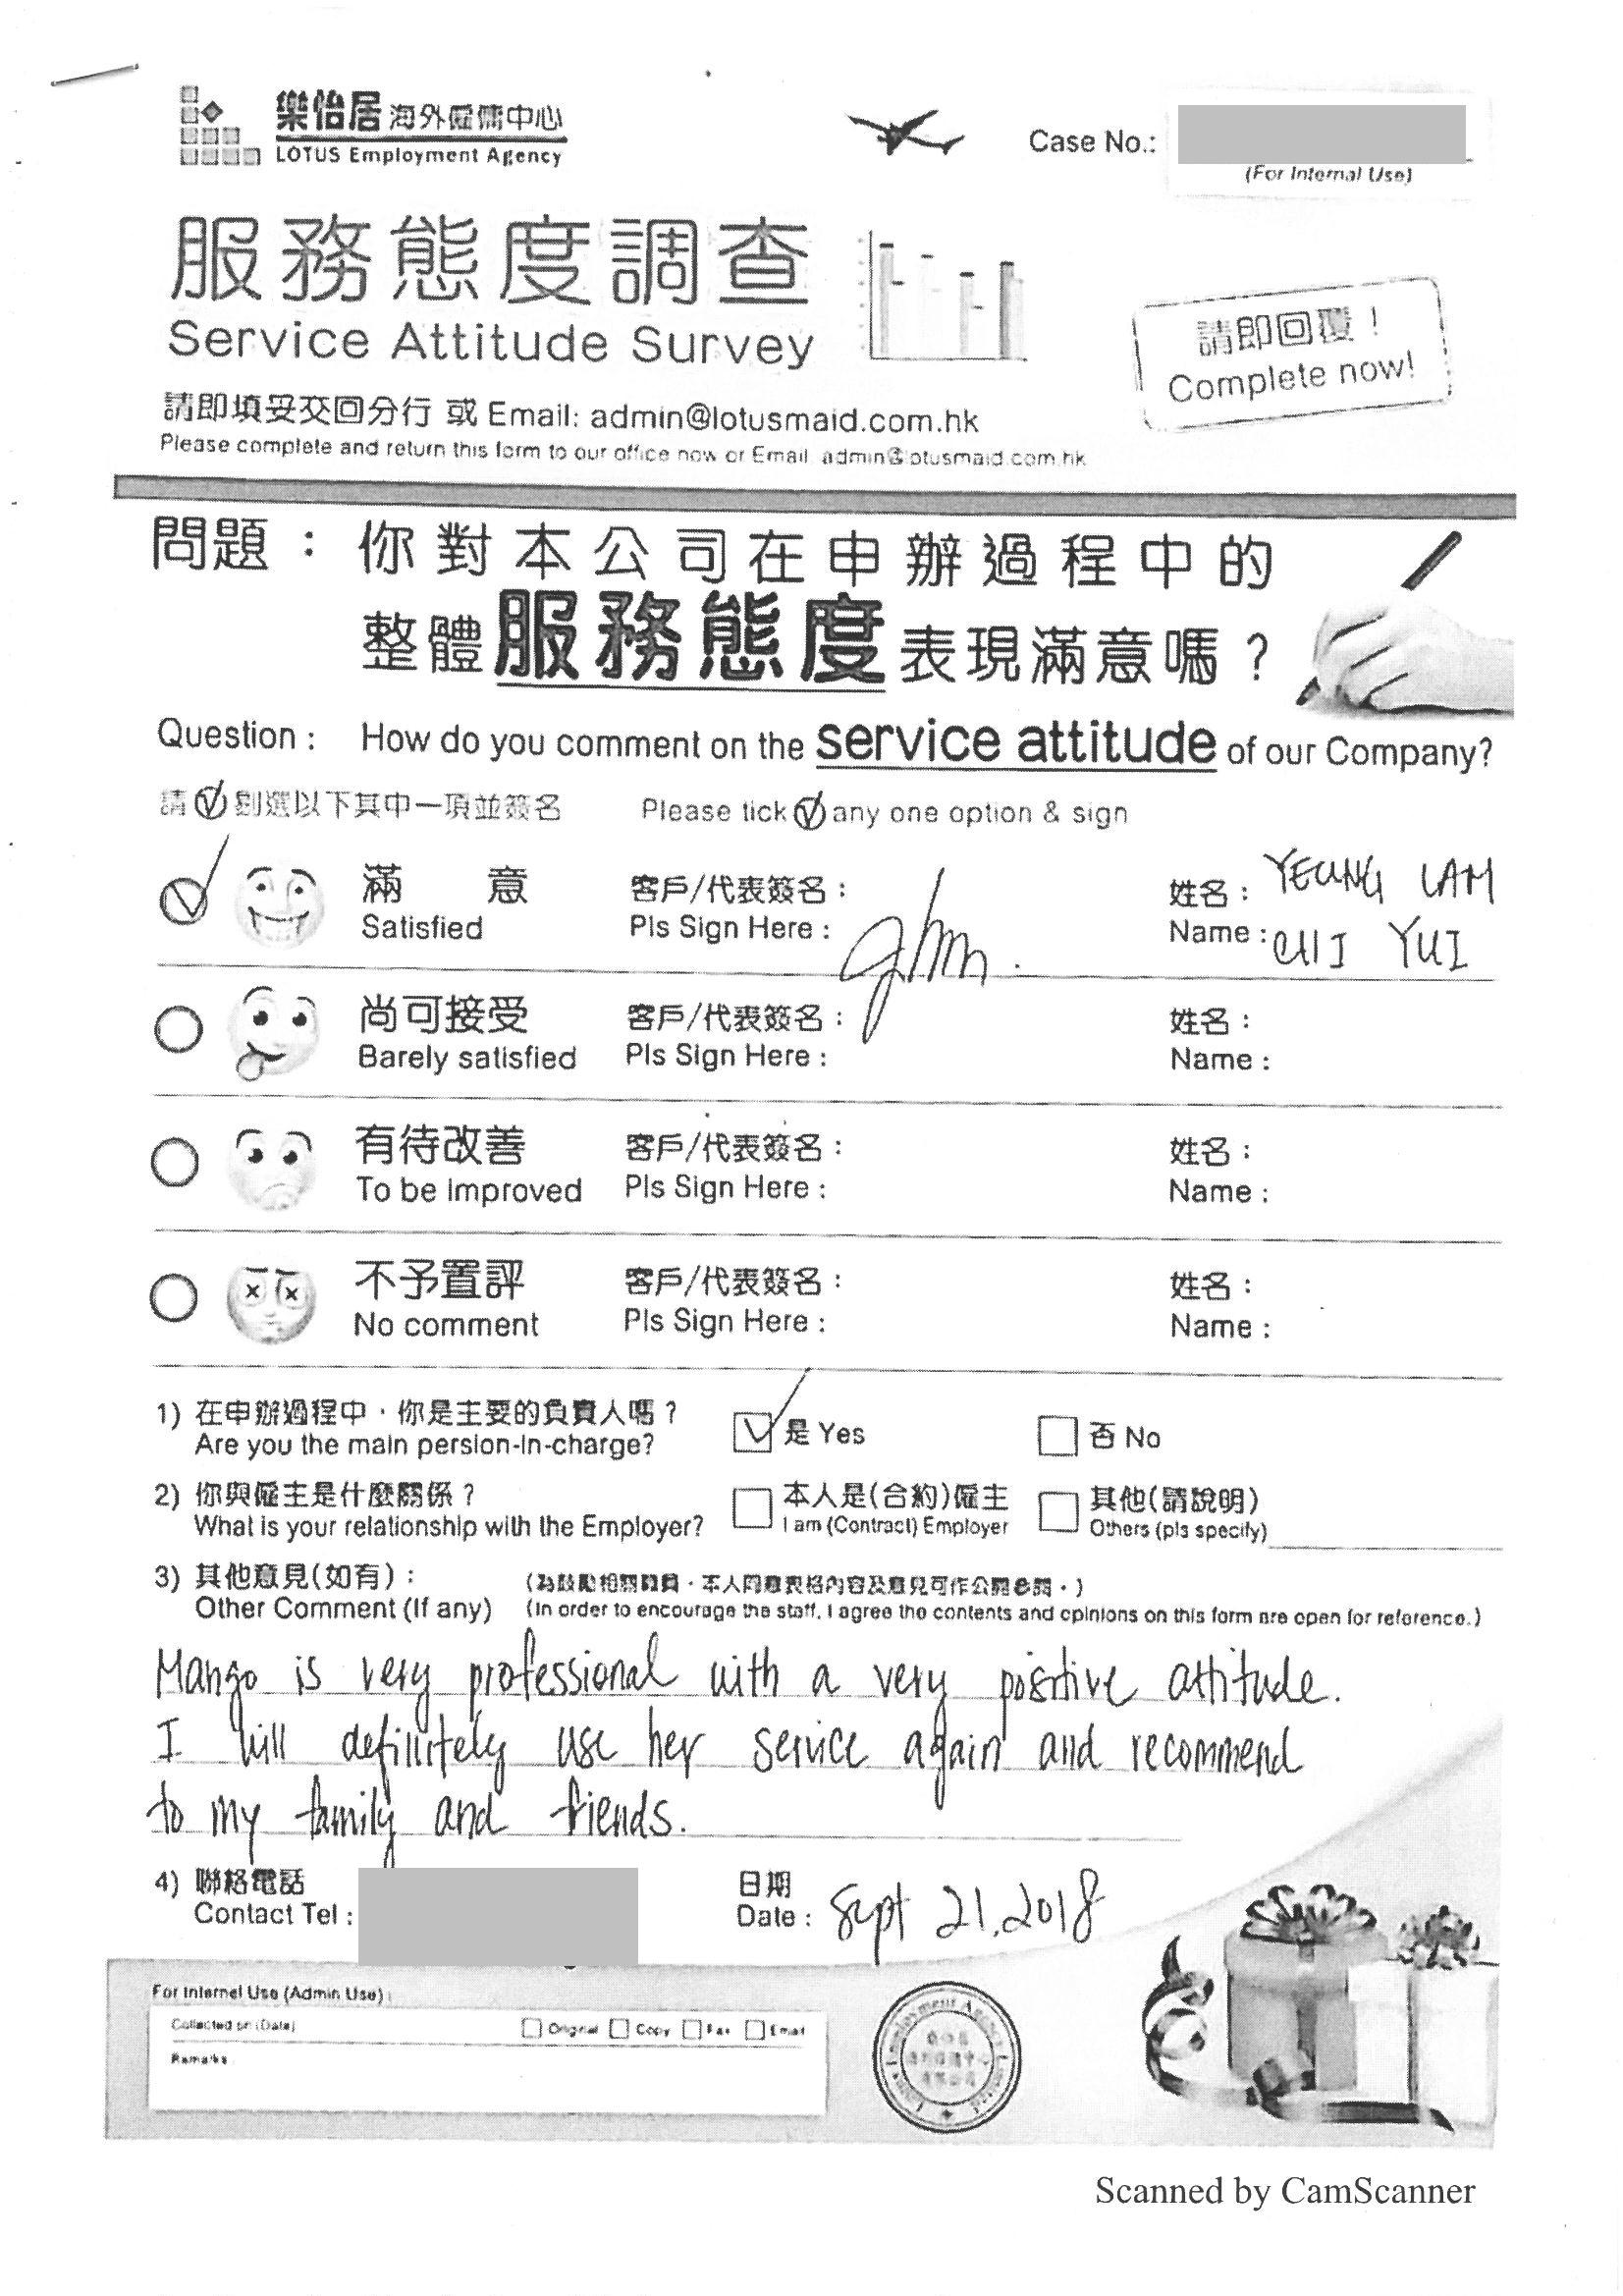 樂怡居 海外僱傭中心
LOTUS Employment Agency
Case No.:
(For Internal Use)
服務態度調查
Service Attitude Survey
請即回覆！
Complete now!
請即填妥交回分行 或 Email: admin@lotusmaid.com.hk
Please complete and return this form to our office now or Email admin@lotusmaid.com.hk
問題： 你對本公司在申辦過程中的
整體服務態度表現滿意嗎？
Question : How do you comment on the service attitude of our Company?
請 剔選以下其中一項並簽名 Please tick any one option & sign
滿 意 客戶/代表簽名： 姓名： YEUNG LAM
Satisfied Pls Sign Here : Name : CHI YUI
尚可接受 客戶/代表簽名： 姓名：
Barely satisfied Pls Sign Here : Name :
有待改善 客戶/代表簽名： 姓名：
To be Improved Pls Sign Here : Name :
不予置評 客戶/代表簽名： 姓名：
No comment Pls Sign Here : Name :
1) 在申辦過程中，你是主要的負責人嗎？ 是 Yes 否 No
Are you the main persion-in-charge?
2) 你與僱主是什麼關係？ 本人是(合約)僱主 其他(請說明)
What is your relationship with the Employer? I am (Contract) Employer Others (pls specify)
3) 其他意見(如有)： (為鼓勵相關職員，本人同意表格內容及意見可作公開參閱。)
Other Comment (If any) (In order to encourage the staff, I agree the contents and opinions on this form are open for reference.)
Mango is very professional with a very positive attitude.
I will definitely use her service again and recommend
to my family and friends.
4) 聯絡電話 日期
Contact Tel : Date : Sept 21, 2018
For Internel Use (Admin Use) :
Collected on (Date) Original Copy Fax Email
Remarks
Scanned by CamScanner